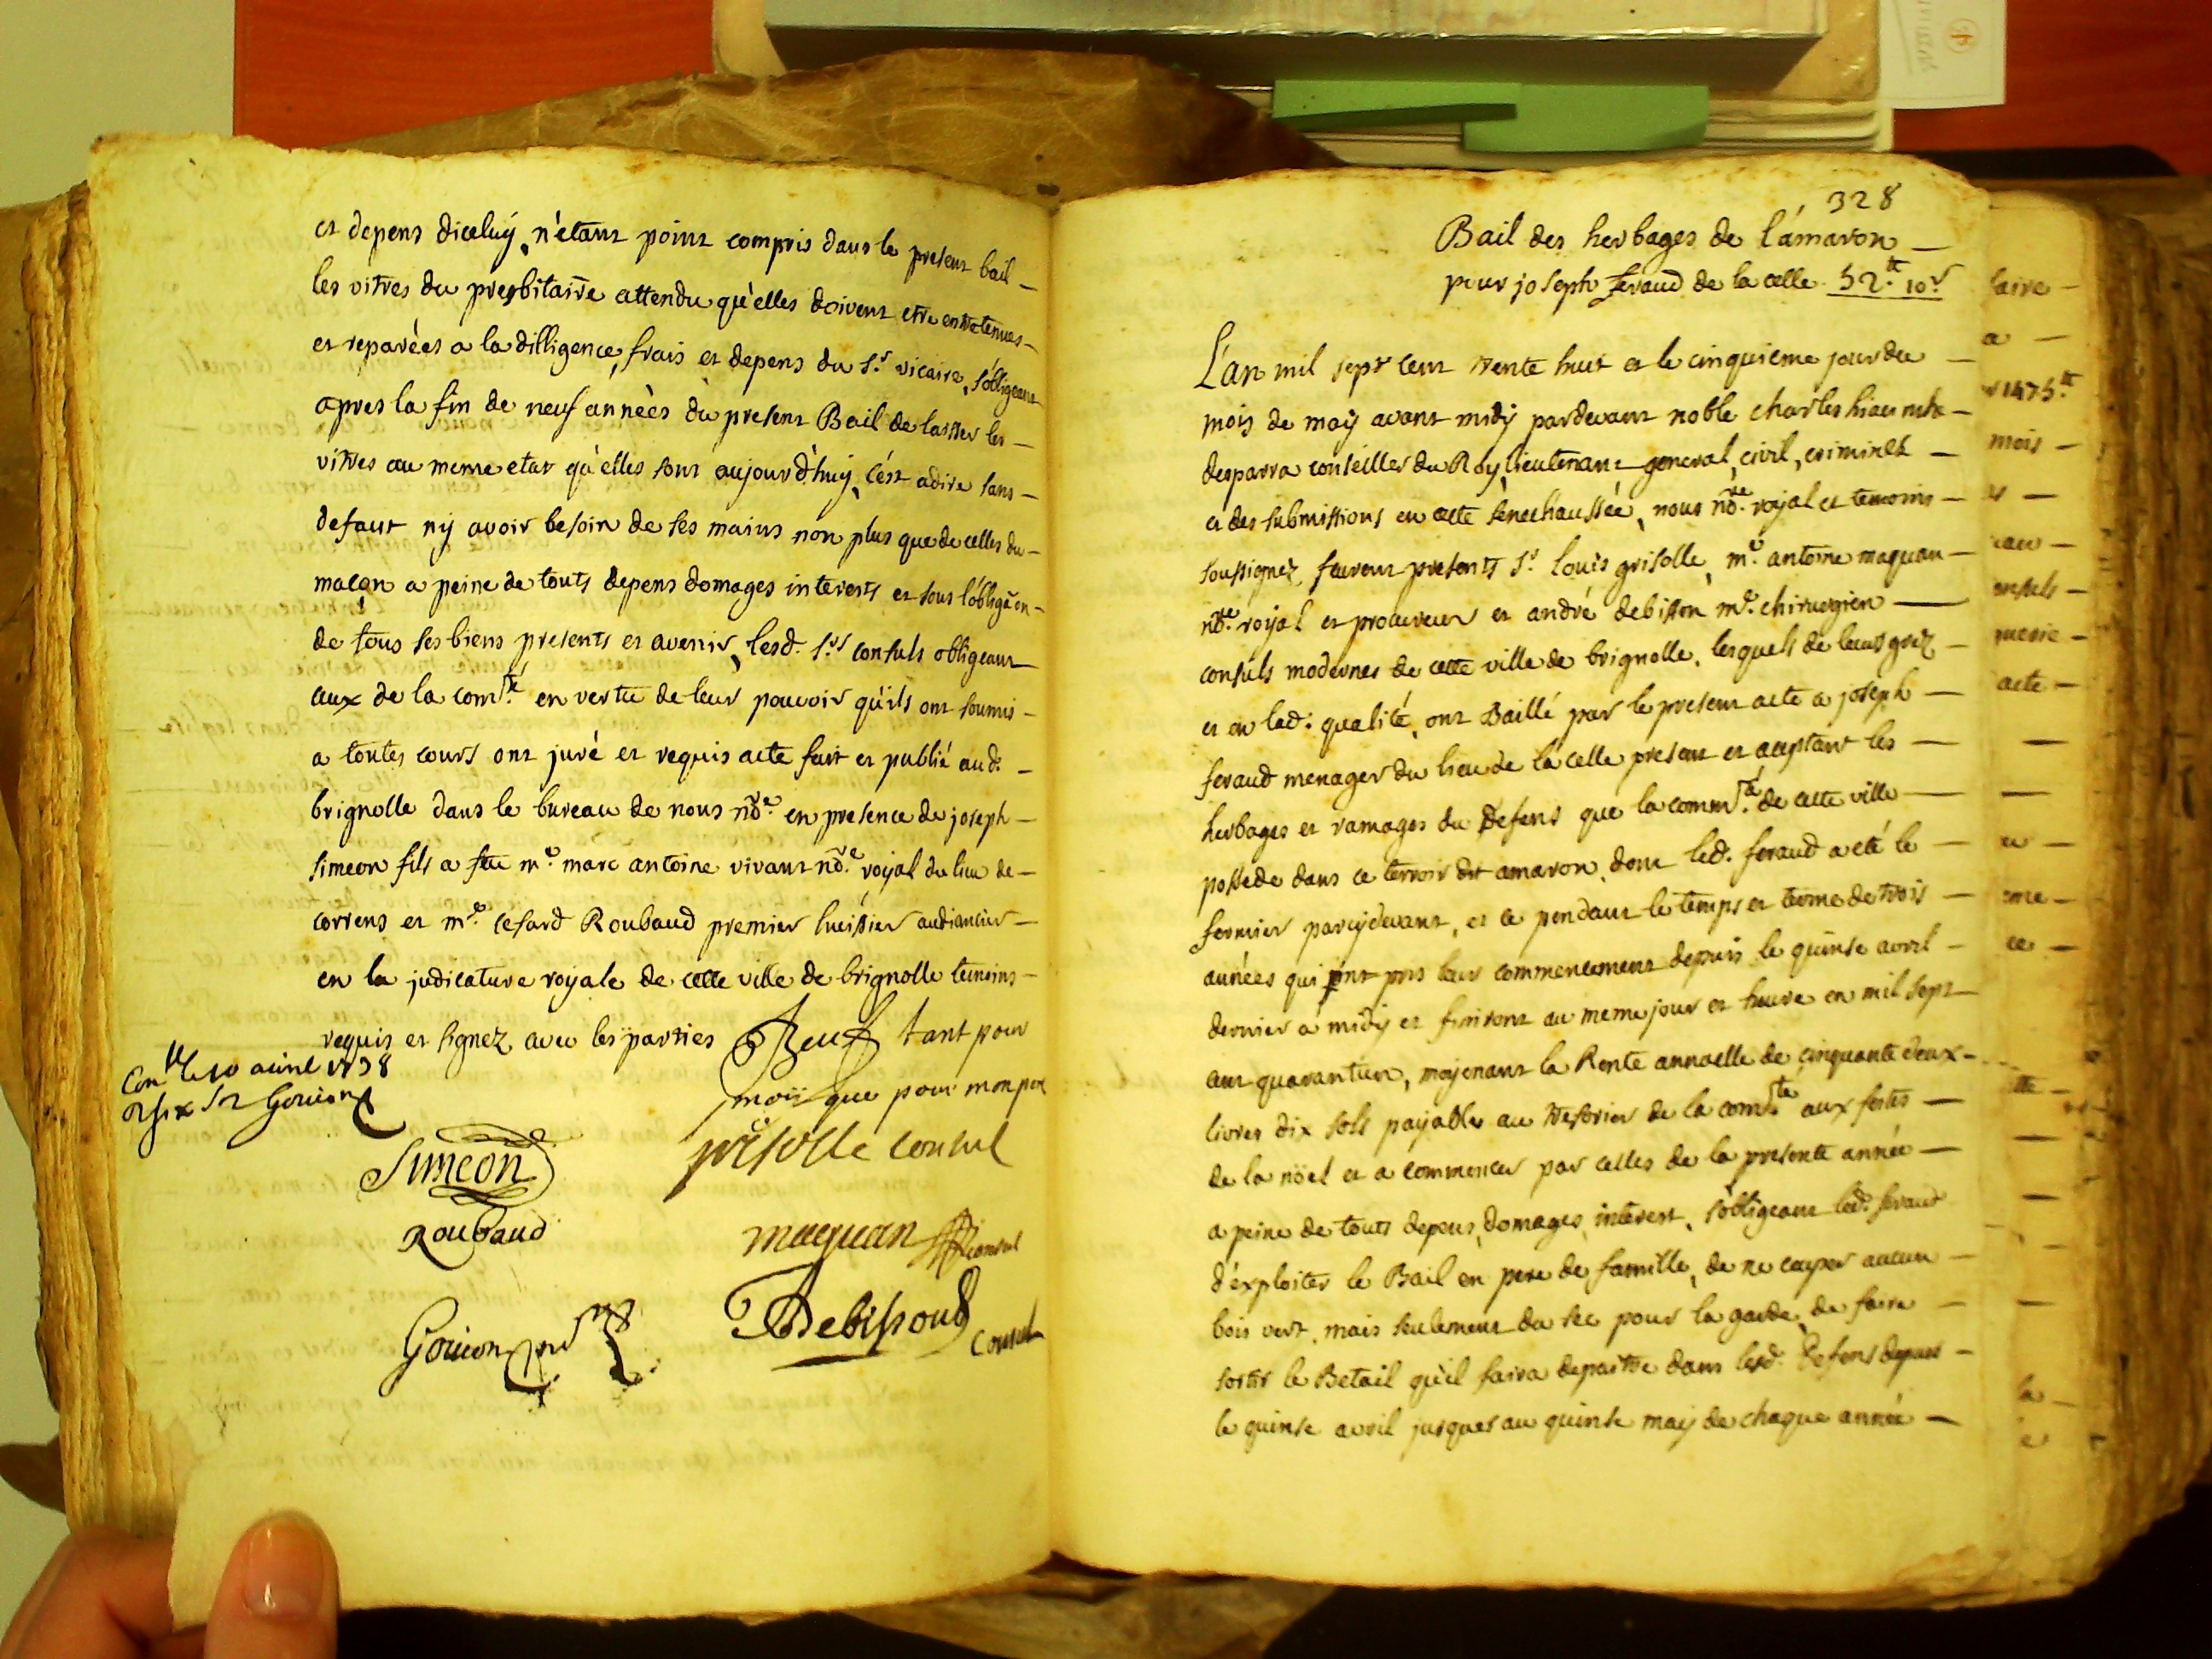 et depens diceluy, n'étant point compris dans le present bail
les vitres du presbitaire attendu qu'elles doivent etre entretenues
et reparées a la dilligence, frais et depens du Sr. vicaire, s'obligeant
apres la fin de neuf années du present Bail de laisser les
vitres au meme etat qu'elles sont aujourd'huy, c'ést adire sans
defaut ny avoir besoin de ses mains non plus que de celles du
maçon a peine de touts depens domages interests et sous l'obligãon
de tous ses biens presents et avenir, lesd. Srs consuls obligeant
aux de la comté. en vertu de leur pouvoir qu'ils ont soumis
a toutes cours ont juré et requis acte fait et publié aud.
brignolle dans le bureau de nous nõre. en presence de joseph
simeon fils a feu me. marc antoine vivant nõre. royal du lieu de
correns et me. cesard Roubaud premier huissier audiancier
en la judicature royale de cette ville de brignolle temoins
requis et signez avec les parties
tant pour
moÿ que pour mon pere
Conlle 10 avril 1738
Simeon
grisolle consul
Roubaud
maquan consul
Debisson
Consul
Goujon
328
Bail des herbages de l'ámaron
pour joseph feraud de la celle 52.tt 10s
L'an mil sept cent trente huit et le cinquieme jour du
mois de may avant midy pardevant noble charles
desparra conseiller du Roy, lieutenant general, civil, criminel
et des submissions en cette senechaussée, nous nõre. royal et temoins
soussignez, feurent presents Sr. louis grisolle, me. antoine maquan
nõre. royal et procureur et andré debisson me. chirurgien
consuls modernes de cette ville de brignolle, lesquels de leurs grez
et en lad. qualité, ont Baillé par le present acte a joseph
feraud menager du lieu de la celle present et aceptant les
herbages et ramages du Defens que la commté. de cette ville
possede dans ce terroir dit amaron, dont led. feraud a eté le
fermier parcydevant, et ce pendant le temps et terme de trois
années qui ont pris leur commencement depuis le quinse avril
dernier a midy et finiront au meme jour et heure en mil sept
cent quarantun, moyenant la Rente annuelle de cinquante deux
livres dix sols payables au tresorier de la comté. aux festes
de la nöel et a commencer par celles de la presente année
a peine de touts depens, domages, interest, s'obligeant led. feraud
d'éxploiter le Bail en pere de famille, de ne couper aucun
bois vert, mais seulement du sec pour la garde, de faire
sortir le Betail qu'il faira depaitre dans led. Defens depuis
le quinse avril jusques au quinse may de chaque année
faire
a
1475.tt
mois
acte